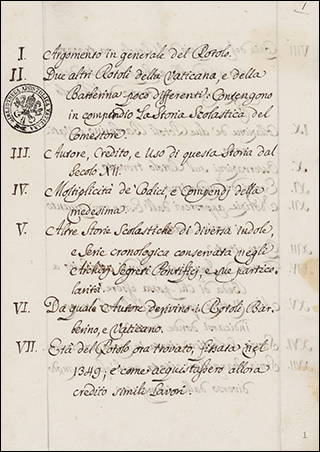 1
I. Argomento in generale del Rotolo.
II. Due altri Rotoli della Vaticana, e della
Barberina poco differenti. Contengono
in compendio La Storia Scolastica del
Comestore.
III. Autore, Credito, e Uso di questa Storia dal
Secolo XII.
IV. Moltiplicità de' Codici, e Compendj della
medesima.
V. Altre Storie Scolastiche di diversa indole,
e Serie cronologica conservata negli
Archivj Segreti Pontificj, e sue partico
larità.
VI. Da quale Autore derivino i Rotoli Bar-
berino, e Vaticano.
VII. Età del Rotolo ora trovato, fissata nel
1349, e come acquistassero allora
credito simili Lavori.
1